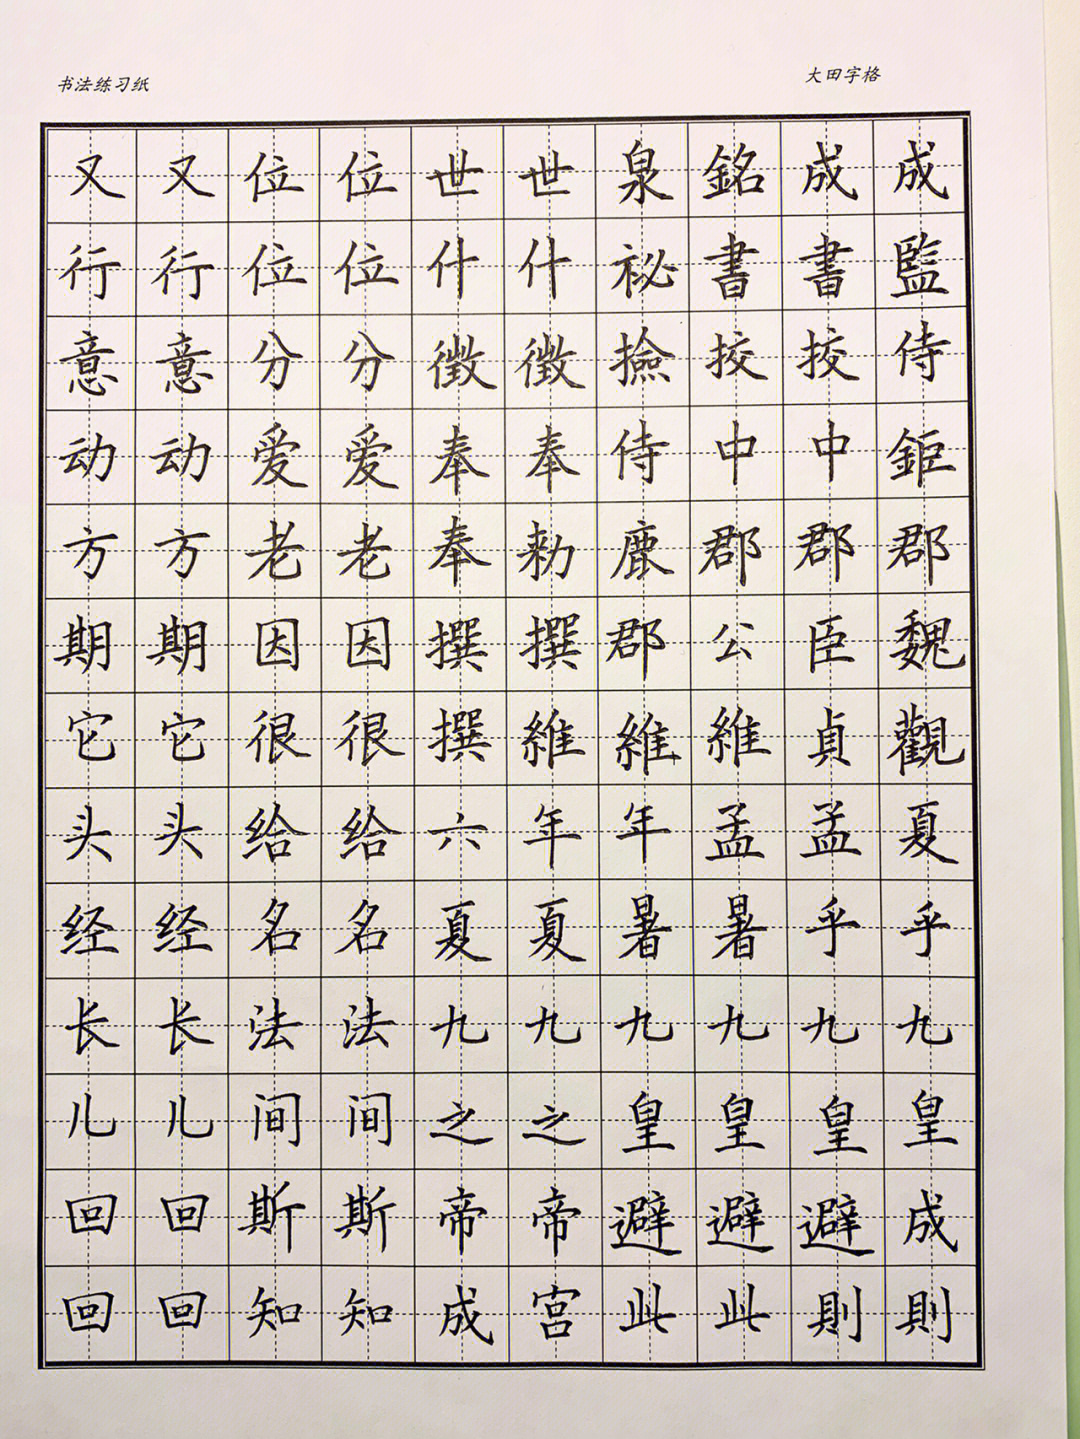 书法练习纸
大田字格
又又位位世世泉銘成成
行行位位什什祕書書監
意意分分徵徵撿挍挍侍
动动爱爱奉奉侍中中鉅
方方老老奉勅鹿郡郡郡
期期因因撰撰郡公臣魏
它它很很撰維維維貞觀
头头给给六年年孟孟夏
经经名名夏夏暑暑乎乎
长长法法九九九九九九
儿儿间间之之皇皇皇皇
回回斯斯帝帝避避避成
回回知知成宮此此則則